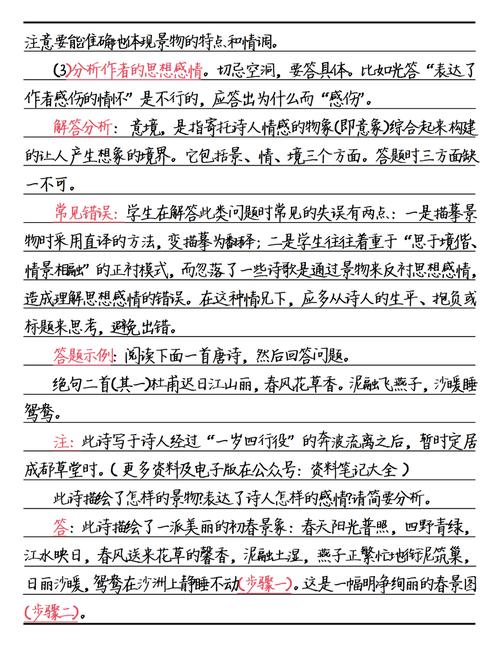 注意要能准确地体现景物的特点和情调。
(3)分析作者的思想感情。切忌空洞，要答具体。比如光答“表达了
作者感伤的情怀”是不行的，应答出为什么而“感伤”。
解答分析：意境，是指寄托诗人情感的物象(即意象)综合起来构建
的让人产生想象的境界。它包括景、情、境三个方面。答题时三方面缺
一不可。
常见错误：学生在解答此类问题时常见的失误有两点：一是描摹景
物时采用直译的方法，变描摹为翻译；二是学生往往着重于“思于境偕、
情景相融”的正衬模式，而忽落了一些诗歌是通过景物来反衬思想感情，
造成理解思想感情的错误。在这种情况下，应多从诗人的生平、抱负或
标题来思考，避免出错。
答题示例：阅读下面一首唐诗，然后回答问题。
绝句二首(其一)杜甫迟日江山丽，春风花草香。泥融飞燕子，沙暖睡
鸳鸯。
注：此诗写于诗人经过“一岁四行役”的奔波流离之后，暂时定居
成都草堂时。(更多资料及电子版在公众号：资料笔记大全)
此诗描绘了怎样的景物?表达了诗人怎样的感情?请简要分析。
答：此诗描绘了一派美丽的初春景象：春天阳光普照，四野青绿，
江水映日，春风送来花草的馨香，泥融土湿，燕子正繁忙地衔泥筑巢，
日丽沙暖，鸳鸯在沙洲上静睡不动(步骤一)。这是一幅明净绚丽的春景图
(步骤二)。